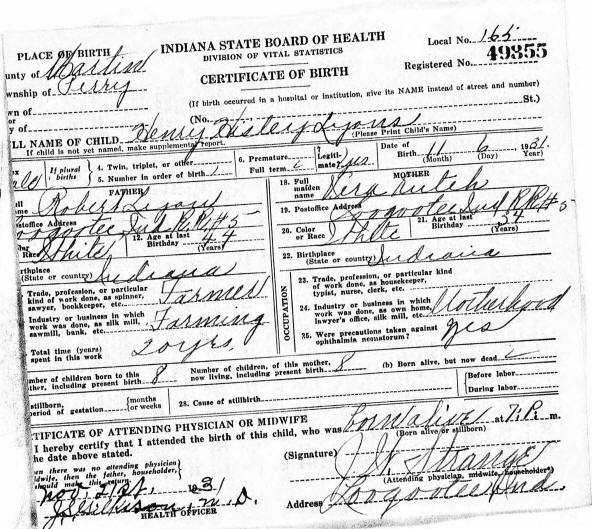 INDIANA STATE BOARD OF HEALTH
DIVISION OF VITAL STATISTICS
CERTIFICATE OF BIRTH
Local No. 165
Registered No. 49355
PLACE OF BIRTH
unty of Martin
wnship of Perry
wn of
y of
(If birth occurred in a hospital or institution, give its NAME instead of street and number)
(No. St.)
LL NAME OF CHILD Henry Lyons
(Please Print Child's Name)
If child is not yet named, make supplemental report.
If plural births
4. Twin, triplet, or other
5. Number in order of birth 1
6. Premature
Full term
7. Legiti-mate? Yes
Date of Birth 11 6 1931
(Month) (Day) Year)
FATHER
Robert Lyons
ostoffice Address
Loogootee Ind R.R. #5
Race White
12. Age at last Birthday 4 (Years)
irthplace
(State or country) Indiana
Trade, profession, or particular kind of work done, as spinner, sawyer, bookkeeper, etc. Farmer
Industry or business in which work was done, as silk mill, sawmill, bank, etc. Farming
Total time (years) spent in this work 20 yrs.
MOTHER
18. Full maiden name
19. Postoffice Address Loogootee Ind R.R. #5
20. Color or Race White
21. Age at last Birthday 34 (Years)
22. Birthplace (State or country) Indiana
OCCUPATION
23. Trade, profession, or particular kind of work done, as housekeeper, typist, nurse, clerk, etc.
24. Industry or business in which work was done, as own home, lawyer's office, silk mill, etc. Motherhood
25. Were precautions taken against ophthalmia neonatorum? yes
mber of children born to this ther, including present birth 8
Number of children, of this mother, now living, including present birth 8
(b) Born alive, but now dead
stillborn, period of gestation
months or weeks
28. Cause of stillbirth
Before labor
During labor
TIFICATE OF ATTENDING PHYSICIAN OR MIDWIFE
I hereby certify that I attended the birth of this child, who was born alive at 7 P. m.
(Born alive or stillborn)
he date above stated.
en there was no attending physician
dwife, then the father, householder,
should make this return.
(Signature) Strange
(Attending physician, midwife, householder*)
Nov. 21st. 1931
Wilkison, M.D.
HEALTH OFFICER
Address Loogootee Ind.